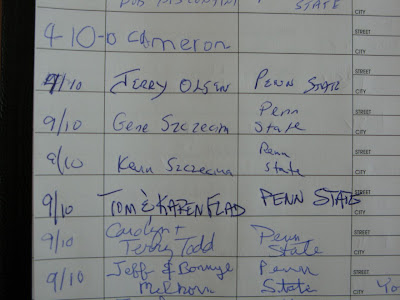 STATE
4-10-0 Cameron
9/10 JERRY OLSEN PENN STATE
STREET
CITY
9/10 Gene Szczecina Penn State
STREET
CITY
9/10 Kevin Szczecina Penn State
STREET
CITY
9/10 TOM & KAREN FLAD PENN STATE
STREET
CITY
9/10 Carolyn + Terry Todd Penn State
STREET
CITY
9/10 Jeff & Bonnye Melhorn Penn State
STREET
CITY